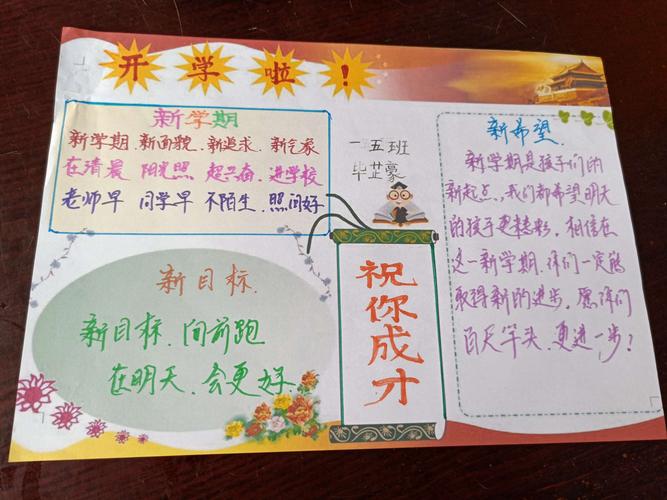 开学啦!
新学期
新学期、新面貌、新追求、新气象
在清晨 阳光照 起兴奋、进学校
老师早 同学早 不陌生、照问好
一五班
毕芷豪
新目标.
新目标、向前跑
在明天、会更好.
祝你成才
新希望.
新学期是孩子们的
新起点,我们都希望明天
的孩子更精彩,相信在
这一新学期,你们一定能
取得新的进步,愿你们
百尺竿头、更进一步!